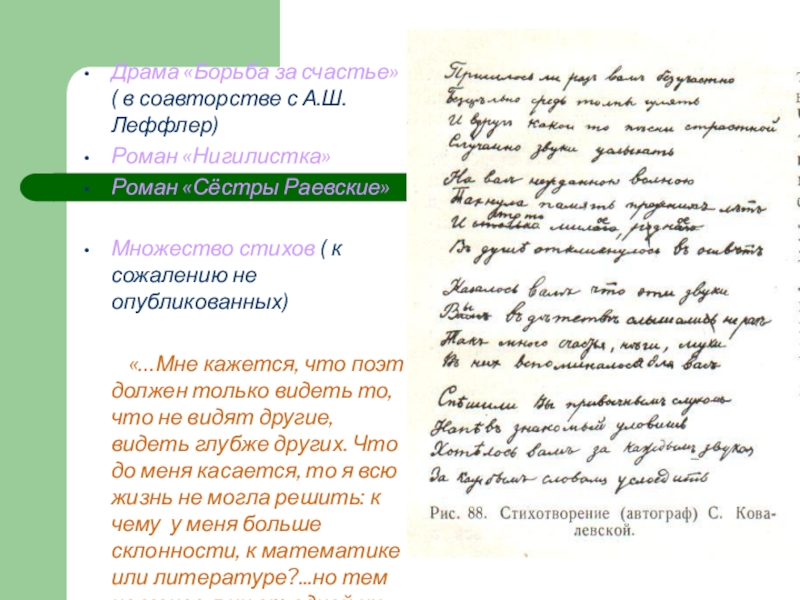 • Драма «Борьба за счастье»
( в соавторстве с А.Ш.
Леффлер)
• Роман «Нигилистка»
• Роман «Сёстры Раевские»
• Множество стихов ( к
сожалению не
опубликованных)
«...Мне кажется, что поэт
должен только видеть то,
что не видят другие,
видеть глубже других. Что
до меня касается, то я всю
жизнь не могла решить: к
чему у меня больше
склонности, к математике
или литературе?...но тем
Пришлось ли разъ вамъ безучастно
Безцѣльно средь толпы гулять
И вдругъ какой то пѣсни страстной
Случайно звуки услыхать
На васъ нежданною волною
Пахнула память прежнихъ лѣтъ
И что то милое, родное
Въ душѣ откликнулось въ отвѣтъ
Казалось вамъ что эти звуки
Вы въ дѣтствѣ слышали не разъ
Такъ много счастья, нѣги, муки
Въ нихъ вспоминалося для васъ
Спѣшили Вы привычнымъ слухомъ
Напѣвъ знакомый уловить
Хотѣлось вамъ за каждымъ звукомъ
За каждымъ словомъ услѣдить
Рис. 88. Стихотворение (автограф) С. Кова-
левской.